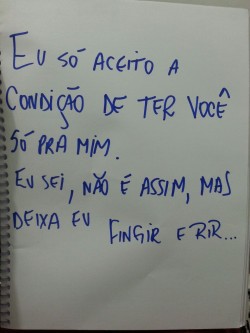 EU SÓ ACEITO A
CONDIÇÃO DE TER VOCÊ
SÓ PRA MIM.
EU SEI, NÃO É ASSIM, MAS
DEIXA EU FINGIR E RIR...